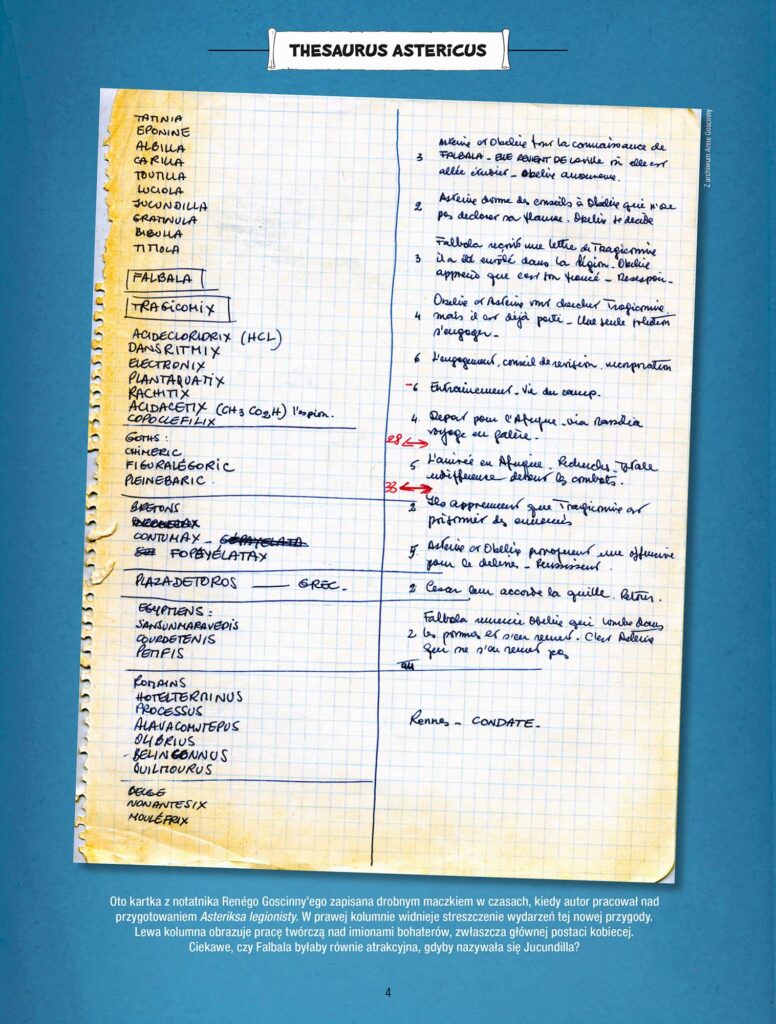 THESAURUS ASTERICUS
Z archiwum Anne Goscinny
TATINIA
EPONINE
ALBILLA
CARILLA
TOUTILLA
LUCIOLA
JUCUNDILLA
GRATNULA
BIBULLA
TITIOLA
FALBALA
TRAGICOMIX
ACIDECLORIDRIX (HCL)
DANSRITMIX
ELECTRONIX
PLANTAQUATIX
RACHITIX
ACIDACETIX (CH3 CO2H) l'espion.
COPOCLEFILIX
GOTHS :
CHIMERIC
FIGURALÉGORIC
PLEINEBARIC.
BRETONS
CONTUMAX -
FOPEYÉLATAX
PLAZADETOROS — GREC.
EGYPTIENS :
SANSUNMARAVEDIS
COURDETENIS
PETIFIS
ROMAINS
HOTELTERMINUS
PROCESSUS
ALAVACOMTEPUS
OLIBRIUS
BELINGONNUS
QUILMOURUS
BELGE
NONANTESIX
MOULÉFRIX
3 Asterix et Obelix font la connaissance de
FALBALA - ELLE REVIENT DE la ville où elle est
allée étudier - Obelix amoureux.
2 Asterix donne des conseils à Obelix qui n'ose
pas declarer sa flamme. Obelix se decide
3 Falbala reçoit une lettre de Tragicomix
il a été enrôlé dans la légion. Obelix
apprend que c'est son fiancé - Desespoir.
4 Obelix et Asterix vont chercher Tragicomix
mais il est déjà parti - Une seule solution
s'engager -
6 L'engagement, conseil de revision, incorporation
6 Entrainement - Vie du camp.
4 Depart pour l'Afrique - via Massilia
voyage en galère -
28
5 L'arrivée en Afrique - Recherches - totale
indifference devant les combats.
33
2 Ils apprennent que Tragicomix est
prisonnier des ennemis
5 Asterix et Obelix provoquent une offensive
pour le delivrer - Reussissent.
2 Cesar leur accorde la quille. Retour.
2 Falbala remercie Obelix qui tombe dans
les pommes et s'en remet. C'est Asterix
qui ne s'en remet pas
44
Rennes - CONDATE -
Oto kartka z notatnika Renégo Goscinny'ego zapisana drobnym maczkiem w czasach, kiedy autor pracował nad
przygotowaniem Asteriksa legionisty. W prawej kolumnie widnieje streszczenie wydarzeń tej nowej przygody.
Lewa kolumna obrazuje pracę twórczą nad imionami bohaterów, zwłaszcza głównej postaci kobiecej.
Ciekawe, czy Falbala byłaby równie atrakcyjna, gdyby nazywała się Jucundilla?
4